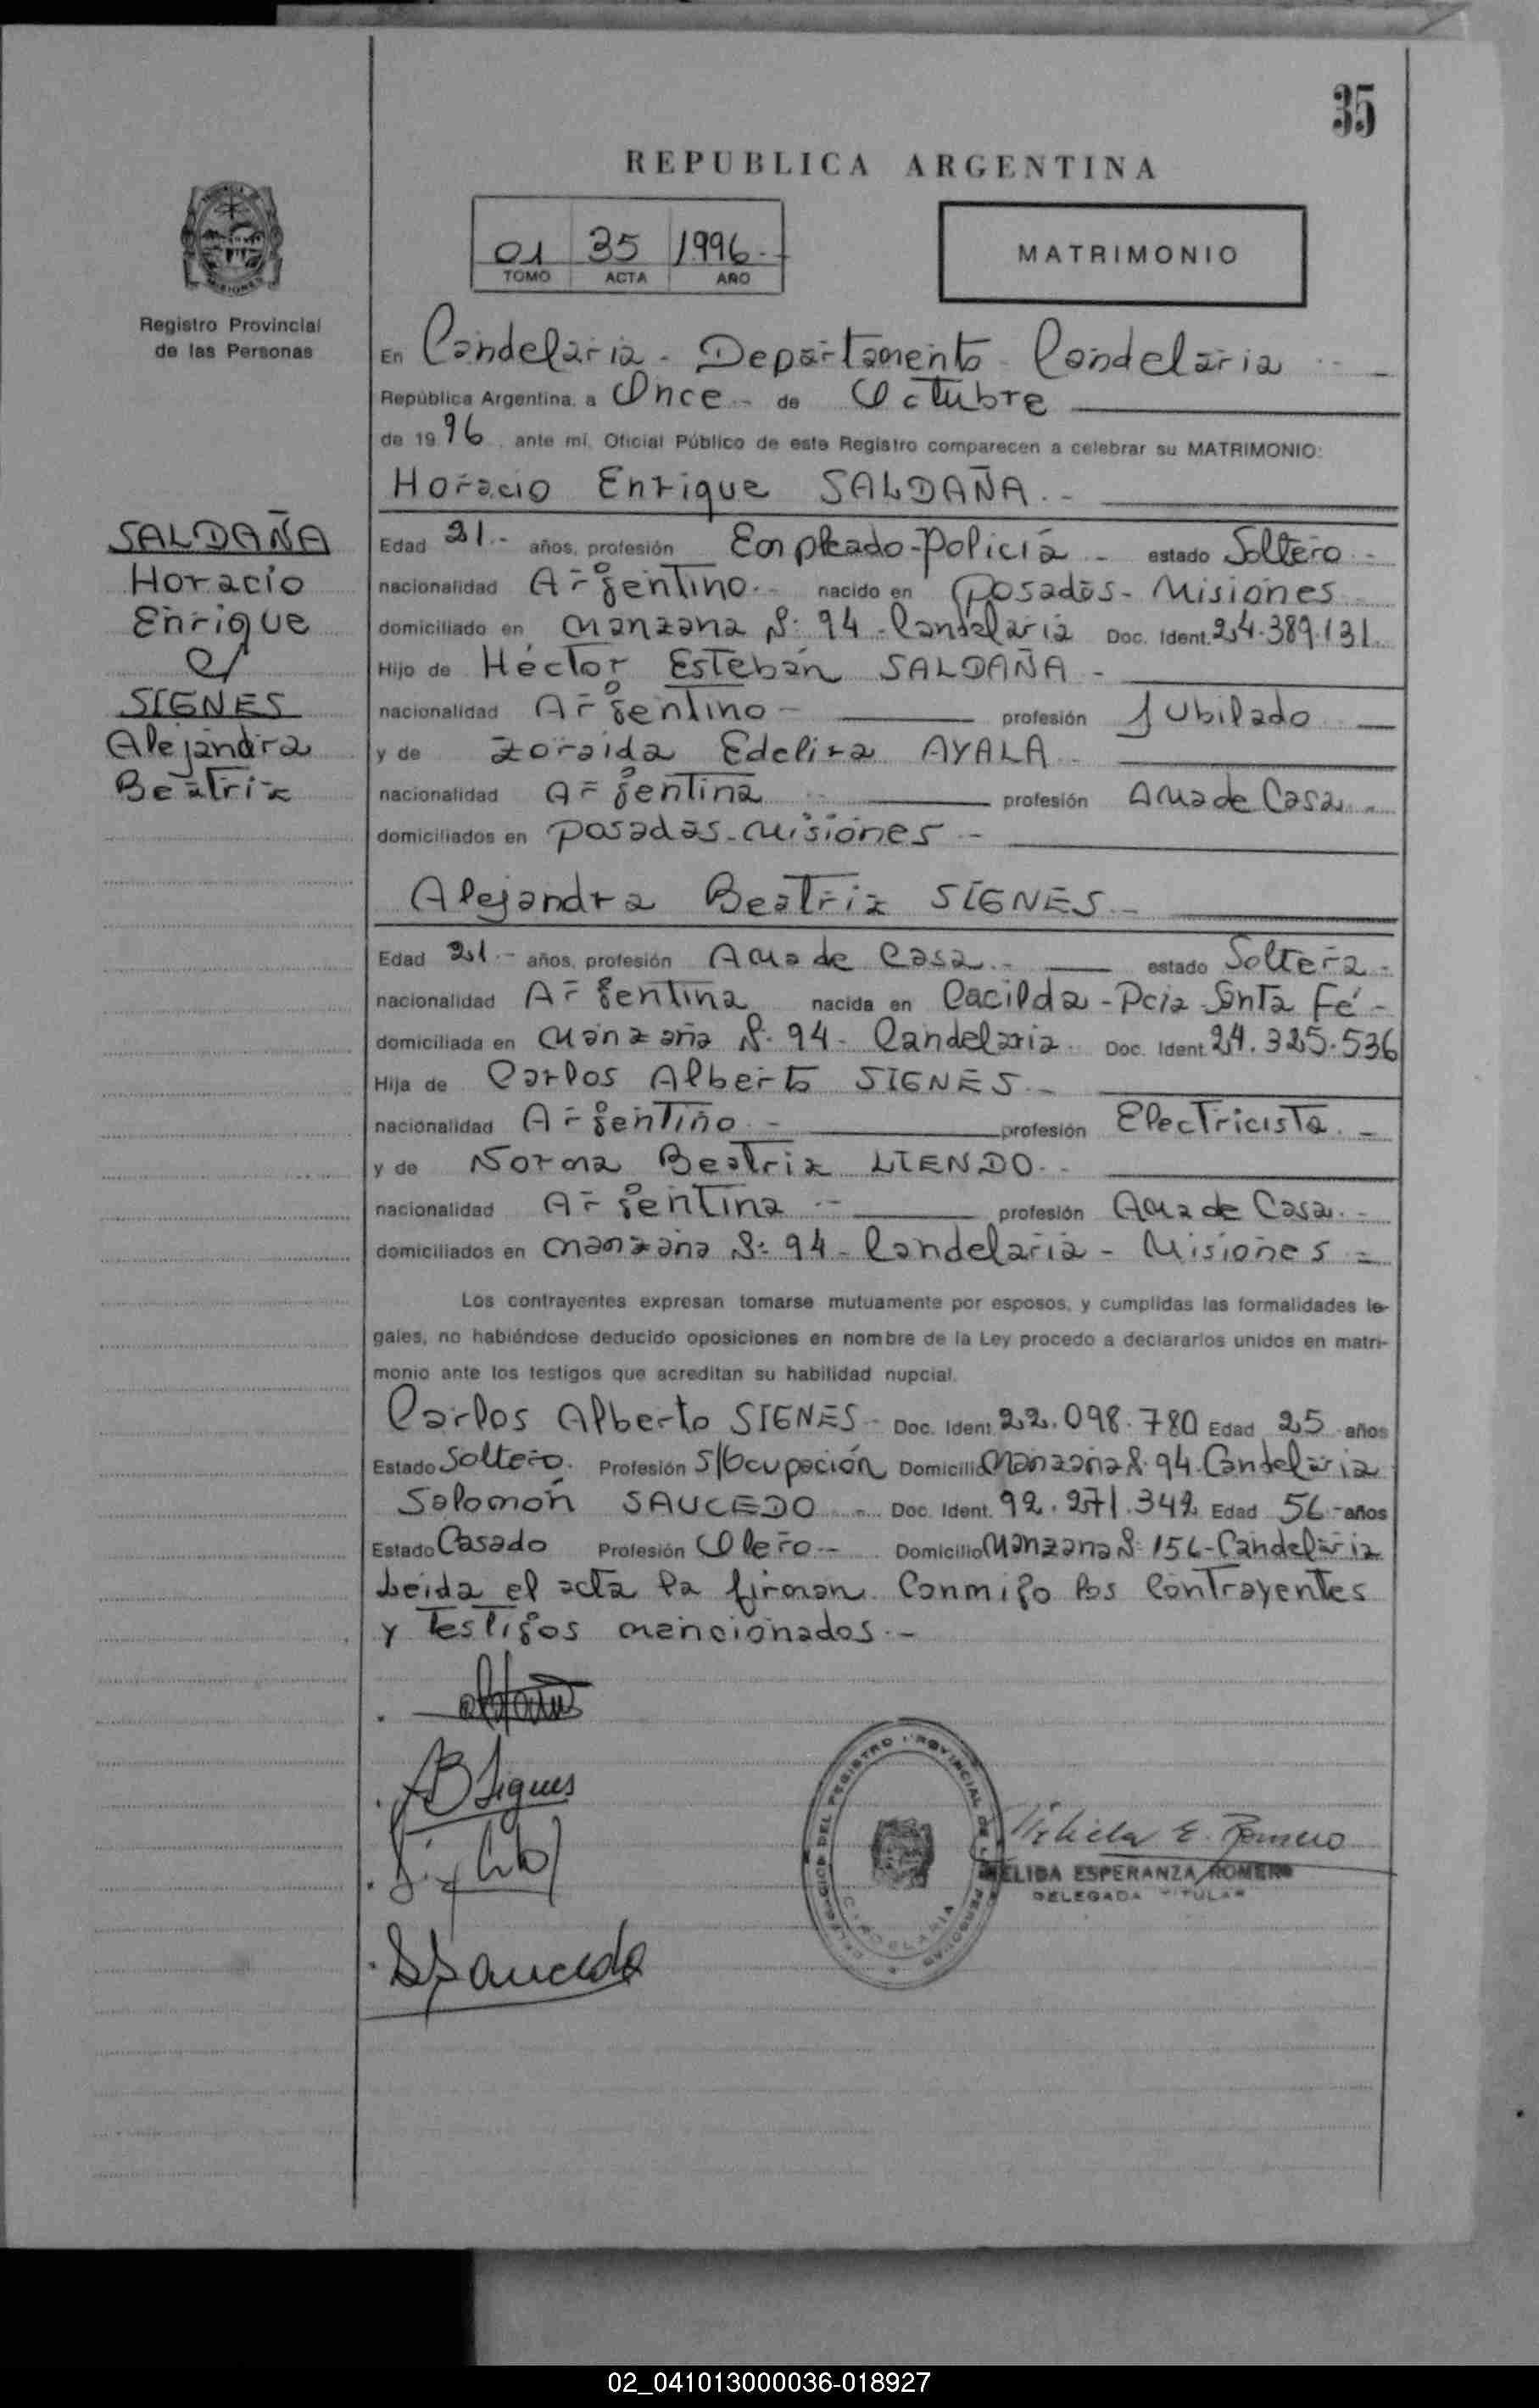 35
REPUBLICA ARGENTINA
01 35 1996.-
TOMO ACTA AÑO
MATRIMONIO
Registro Provincial
de las Personas
En Candelaria - Departamento Candelaria -
República Argentina, a Once - de Octubre
de 1996, ante mí, Oficial Público de este Registro comparecen a celebrar su MATRIMONIO:
Horacio Enrique SALDAÑA.-
SALDAÑA
Horacio
Enrique
c/
SIGNES
Alejandra
Beatriz
Edad 21.- años, profesión Empleado-Policía - estado Soltero -
nacionalidad Argentino.- nacido en Posadas - Misiones
domiciliado en Manzana S: 94 - Candelaria Doc. Ident. 24.389.131.
Hijo de Héctor Esteban SALDAÑA -
nacionalidad Argentino - profesión Jubilado
y de Zoraida Edeliza AYALA
nacionalidad Argentina profesión Ama de Casa -
domiciliados en Posadas - Misiones -
Alejandra Beatriz SIGNES -
Edad 21.- años, profesión Ama de Casa.- estado Soltera -
nacionalidad Argentina nacida en Cacilda - Pcia Santa Fé -
domiciliada en Manzana S: 94 - Candelaria Doc. Ident. 24.325.536
Hija de Carlos Alberto SIGNES -
nacionalidad Argentino - profesión Electricista. -
y de Norma Beatriz LIENDO.-
nacionalidad Argentina - profesión Ama de Casa. -
domiciliados en Manzana S: 94 - Candelaria - Misiones =
Los contrayentes expresan tomarse mutuamente por esposos, y cumplidas las formalidades le-
gales, no habiéndose deducido oposiciones en nombre de la Ley procedo a declararlos unidos en matri-
monio ante los testigos que acreditan su habilidad nupcial.
Carlos Alberto SIGNES - Doc. Ident. 22.098.780 Edad 25 años
Estado Soltero. Profesión S/Ocupación Domicilio Manzana S: 94 Candelaria
Salomón SAUCEDO - Doc. Ident. 92.271.342 Edad 56 - años
Estado Casado Profesión Olero - Domicilio Manzana S: 156 - Candelaria
Leida el acta la firman Conmigo los Contrayentes
y Testigos mencionados.-
AB Signes
SSaucedo
DELEGACION DEL REGISTRO PROVINCIAL DE LAS PERSONAS
CANDELARIA
Romero
ELIDA ESPERANZA ROMERO
DELEGADA TITULAR
02_041013000036-018927